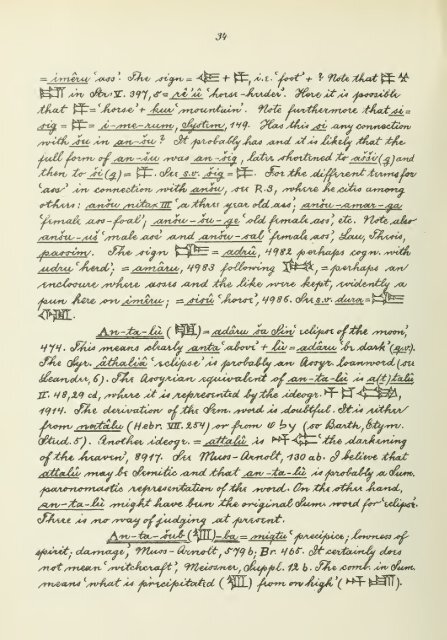 34
= imêru 'ass'. The sign = + , i.e. 'foot' + ? Note that
in Str. V. 397, 8 = rê'û 'horse-herder'. Here it is possible
that = 'horse' + kur 'mountain'. Note furthermore that si =
sig = = i-me-rum, System, 149. Has this si any connection
with šu in an-šu? It probably has and it is likely that the
full form of an-šu was an-šig, later shortened to aši(g) and
then to ši(g) = . See s.v. šig = . For the different terms for
'ass' in connection with anšu, see R.S, where he cites among
others: anšu nitax III 'a three year old ass'; anšu-amar-ga
'female ass-foal'; anšu-šu-ge 'old female ass', etc. Note also
anšu-uš 'male ass' and anšu-sal 'female ass', Lau, Thesis,
passim. The sign = adru, 4982 perhaps cogn. with
udru 'herd'; = amâru, 4983 following , = perhaps an
enclosure where asses and the like were kept, evidently a
pun here on imêru; = sisû 'horse', 4986. See s.v. dura =
An-ta-lù ( ) = adâru ša Sin 'eclipse of the moon',
474. This means clearly anta 'above' + lù = adâru 'be dark' (q.v).
The Syr. âthaliâ 'eclipse' is probably an Assyr. loanword (see
Leander, 6). The Assyrian equivalent of an-ta-lù is a(t)talû
II. 48, 29 cd, where it is represented by the ideogr.
1914. The derivation of the Sem. word is doubtful. It is either
from natâlu (Hebr. VII. 254) or from (so Barth, Etym.
Stud. 5). Another ideogr. = attalû is 'the darkening
of the heaven', 8917. See Muss-Arnolt, 130 ab. I believe that
attalû may be Semitic and that an-ta-lù is probably a Sum.
paronomastic representation of the word. On the other hand,
an-ta-lù might have been the original Sum. word for 'eclipse'.
There is no way of judging at present.
An-ta-šub ( )-ba = miqtu 'precipice; lowness of
spirit; damage', Muss-Arnolt, 579 b; Br. 465. It certainly does
not mean 'witchcraft', Meissner, Suppl. 12 b. The comb. in Sum.
means 'what is precipitated ( ) from on high' ( ).